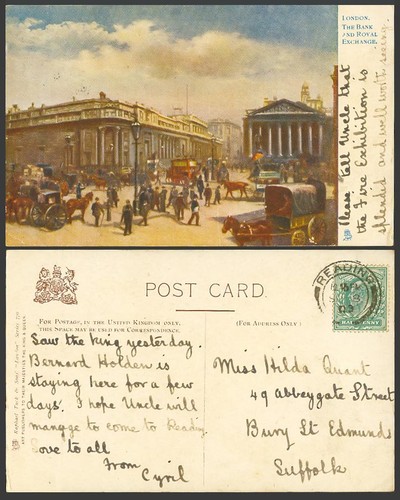 LONDON.
THE BANK
AND ROYAL
EXCHANGE.
Please tell Uncle that
the Fire Exhibition is
splendid and well worth seeing.
POST CARD.
FOR POSTAGE, IN THE UNITED KINGDOM ONLY,
THIS SPACE MAY BE USED FOR CORRESPONDENCE.
(FOR ADDRESS ONLY)
READING
03
HALFPENNY
Saw the king yesterday.
Bernard Holden is
staying here for a few
days. I hope Uncle will
manage to come to Reading
Love to all
From
Cyril
Miss Hilda Quant
49 Abbeygate Street
Bury St Edmunds
Suffolk
ART PUBLISHERS TO THEIR MAJESTIES THE KING & QUEEN.